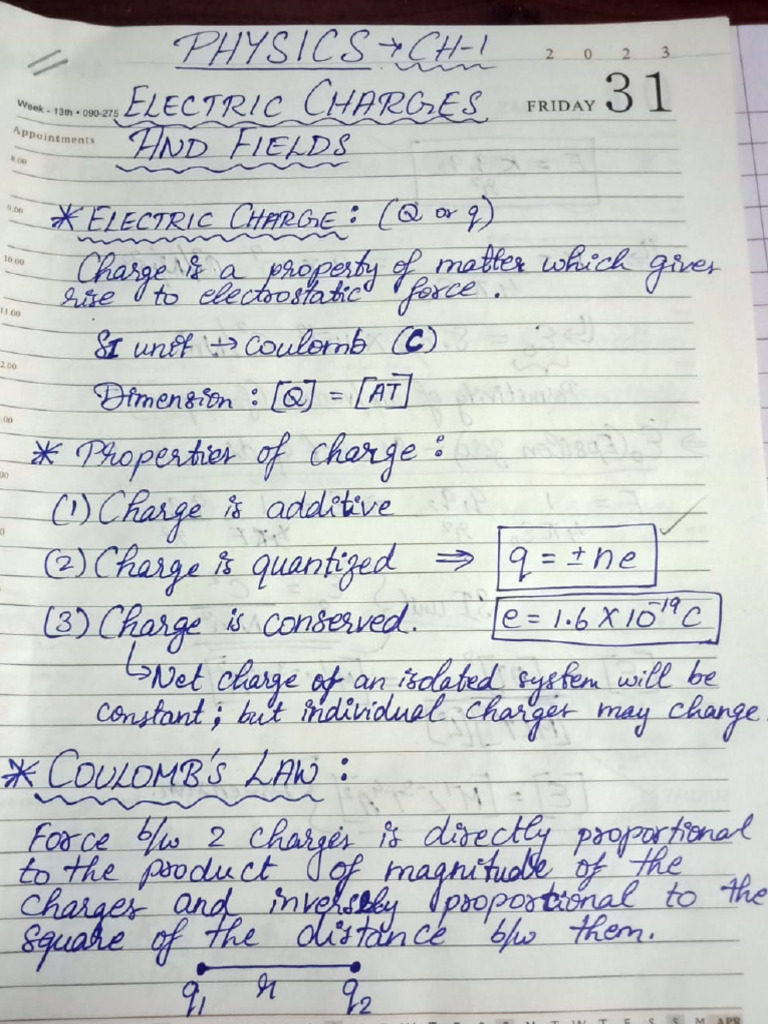 PHYSICS → CH-1
2 0 2 3
Week - 13th • 090-275
ELECTRIC CHARGES
FRIDAY 31
Appointments
AND FIELDS
8.00
9.00
* ELECTRIC CHARGE : (Q or q)
10.00
Charge is a property of matter which gives
rise to electrostatic force.
11.00
SI unit → coulomb (C)
2.00
Dimension : [Q] = [AT]
.00
* Properties of charge :
00
(1) Charge is additive
0
(2) Charge is quantized ⇒ q = ± ne
(3) Charge is conserved. e = 1.6 X 10⁻¹⁹ C
↳ Net charge of an isolated system will be
constant ; but individual charges may change
* COULOMB'S LAW :
Force b/w 2 charges is directly proportional
to the product of magnitude of the
charges and inversely proportional to the
square of the distance b/w them.
q₁ r q₂
T W T F S S M APR